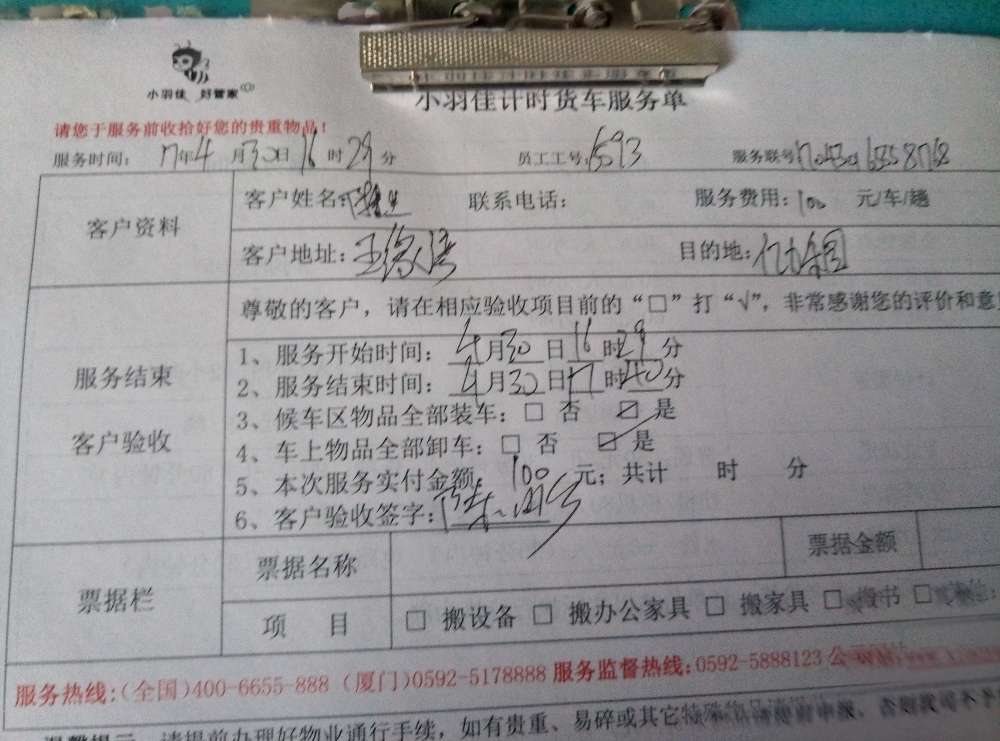 小羽佳 好管家
小羽佳计时货车服务单
请您于服务前收拾好您的贵重物品！
服务时间： 17年4月30日16时29分 员工工号： 服务联号
客户资料
客户姓名 联系电话： 服务费用：100 元/车/趟
客户地址： 目的地：
服务结束
客户验收
尊敬的客户，请在相应验收项目前的“□”打“√”，非常感谢您的评价和意
1、服务开始时间：4月30日16时29分
2、服务结束时间：4月30日17时40分
3、候车区物品全部装车：□ 否 ☑ 是
4、车上物品全部卸车：□ 否 ☑ 是
5、本次服务实付金额：100 元；共计 时 分
6、客户验收签字：
票据栏
票据名称 票据金额
项 目 □ 搬设备 □ 搬办公家具 □ 搬家具 □ 搬书 □
服务热线:(全国)400-6655-888 (厦门)0592-5178888 服务监督热线:0592-5888123
温馨提示 请提前办理好物业通行手续，如有贵重、易碎或其它特殊物品请提前申报，否则我司不予